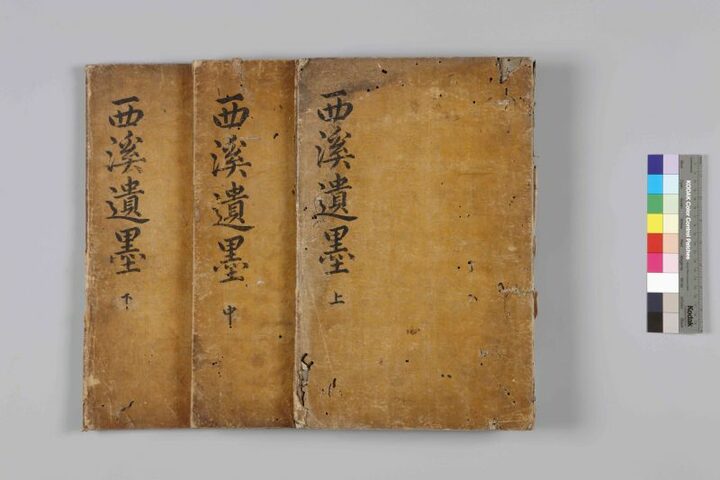 西溪遺墨 上
西溪遺墨 中
西溪遺墨 下
KODAK Color Control Patches
Kodak